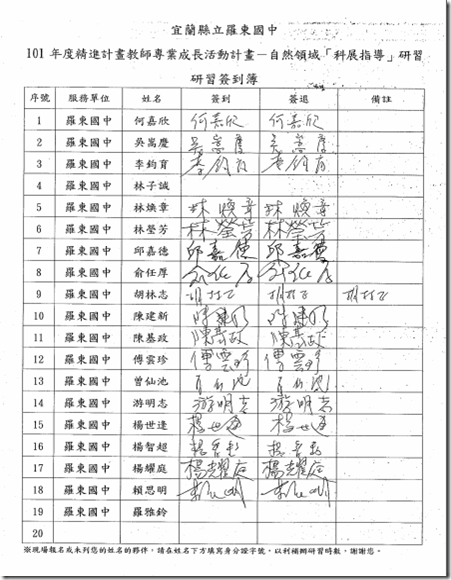 宜蘭縣立羅東國中
101 年度精進計畫教師專業成長活動計畫－自然領域「科展指導」研習
研習簽到簿
序號 服務單位 姓名 簽到 簽退 備註
1 羅東國中 何嘉欣 何嘉欣 何嘉欣
2 羅東國中 吳嵩慶 吳嵩慶 吳嵩慶
3 羅東國中 李鈞育 李鈞育 李鈞育
4 羅東國中 林子誠
5 羅東國中 林煥章 林煥章 林煥章
6 羅東國中 林瑩芳 林瑩芳 林瑩芳
7 羅東國中 邱嘉德 邱嘉德 邱嘉德
8 羅東國中 俞任厚 俞任厚 俞任厚
9 羅東國中 胡林志 胡林志 胡林志 胡林志
10 羅東國中 陳建新
11 羅東國中 陳基政 陳基政 陳基政
12 羅東國中 傅雲珍 傅雲珍 傅雲珍
13 羅東國中 曾仙池
14 羅東國中 游明志 游明志 游明志
15 羅東國中 楊世逢 楊世逢 楊世逢
16 羅東國中 楊智超 楊智超 楊智超
17 羅東國中 楊耀庭 楊耀庭 楊耀庭
18 羅東國中 賴思明 賴思明 賴思明
19 羅東國中 羅雅鈴
20
※現場報名或未列您的姓名的夥伴，請在姓名下方填寫身分證字號，以利核研習時數，謝謝您。